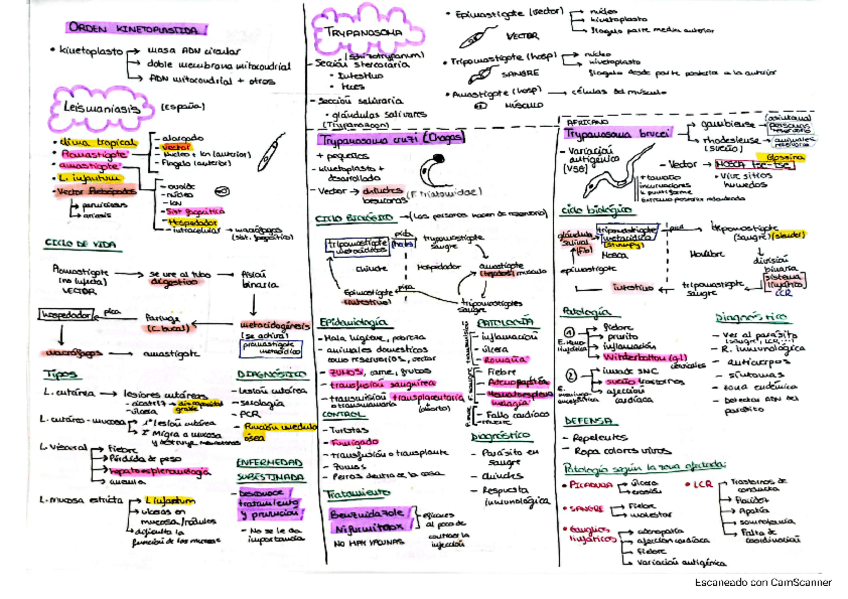 ORDEN KINETOPLASTIDA
• kinetoplasto → masa ADN circular
→ doble membrana mitocondrial
→ ADN mitocondrial + otros
Leismaniasis (españa)
• clima tropical
• Promastigote
- alargado
- vector
- Núcleo + kn (anterior)
- Flagelo (anterior)
• amastigote
• L. infantum
- ovoide
- núcleo
- kn
- Hospedador
- intracelular → macrófagos
CICLO DE VIDA
Promastigote → se une al tubo digestivo → fisión binaria
VECTOR
metacidogénesis
(se activa)
promastigote metacídico
Faringe (c. bucal)
pica
hospedador
macrófagos → amastigote
Tipos
L. cutánea → lesiones cutáneas
- úlcera
L. cutáneo-mucosa → 1º lesión cutánea
2º Migra a mucosa
L. visceral → Fiebre
→ Pérdida de peso
→ hepatoesplenomegalia
→ anemia
L. mucosa estricta → L. infantum
→ úlceras en mucosa/nódulos
→ dificulta la función de las mucosas
DIAGNÓSTICO
- Lesión cutánea
- serología
- PCR
- Punción médula ósea
ENFERMEDAD SUBESTIMADA
- desconoce tratamiento y prevención
- No se le da importancia
TRYPANOSOMA
- Sección stercoraria
• Intestino
• heces
- Sección salivaria
• glándulas salivares
(Trypanozoon)
• Epimastigote (vector) → núcleo
→ kinetoplasto
→ flagelo parte media anterior
VECTOR
• Tripomastigote (hosp) → núcleo
→ kinetoplasto
flagelo desde parte posterior a la anterior
SANGRE
• Amastigote (hosp) → células del músculo
MÚSCULO
Trypanosoma cruzi (Chagas)
+ pequeños
- kinetoplasto + desarrollado
- Vector → chinches
(F. Triatomidae)
CICLO BIOLÓGICO → (las personas hacen de reservorio)
tripomastigote metacíclico
pica
(heces)
trypomastigote sangre
chinche
Hospedador
amastigote (tejidos) músculo
Epimastigote (intestino)
pica
tripomastigotes sangre
Epidemiología
- Mala higiene, pobreza
- animales domésticos como reservorios, vector
- zumos, carne, frutas
- transfusión sanguínea
- transmisión transplacentaria
(aborto)
CONTROL
- Turistas
- Fumigado
- transfusión o transplante
- zumos
- Perros dentro de la casa
Tratamiento
Benznidazole
Nifurtimox
→ eficaces al poco de contraer la infección
NO HAY VACUNAS
PATOLOGÍA
- inflamación
- úlcera
- Romaña
- Fiebre
- Adenopatía
- Hepatoesplenomegalia
- Fallo cardíaco
- muerte
Diagnóstico
- Parásito en sangre
- chinches
- Respuesta inmunológica
AFRICANO
Trypanosoma brucei → gambiense
→ rhodesiense (sueño)
- Variación antigénica (VSG)
- Vector → MOSCA TSE-TSE
Glossina
- Vive sitios húmedos
ciclo biológico
glándula salival
tripomastigote metacíclica
(stumpy)
pica
tripomastigote (sangre) (slender)
Mosca
Hombre
división binaria
sistema linfático
LCR
epimastigote
intestino
tripomastigote sangre
Patología
1 → fiebre
→ prurito
→ inflamación
→ Winterbottom (g.l)
cervicales
2 → invade SNC
→ sueño trastornos
→ afección cardíaca
Diagnóstico
- ver al parásito (sangre, LCR...)
- R. inmunológica
- anticuerpos
- síntomas
- zona endémica
- Detectar ADN del parásito
DEFENSA
- Repelentes
- Ropa colores vivos
Patología según la zona afectada:
• PICADURA → úlcera
• SANGRE → Fiebre
→ malestar
• Ganglios linfáticos → adenopatía
→ afección cardíaca
→ fiebre
→ variación antigénica
• LCR → Trastornos de conducta
→ Apatía
→ somnolencia
→ Falta de coordinación
Escaneado con CamScanner